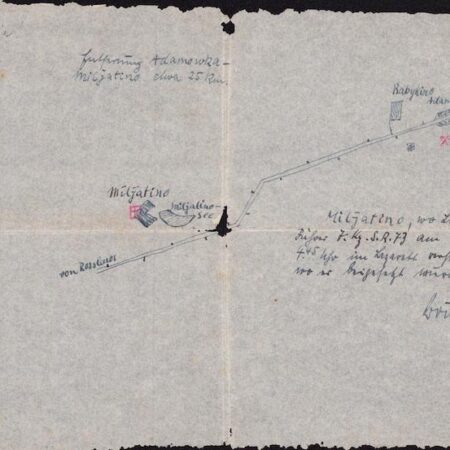 Entfernung Adamowka –
Miljatino etwa 25 Km.
Babykino
Adam
Miljatino
Miljatino-
see
von Rosslawl
Miljatino, wo
Führer 7. Kp. S.R. 73 am
7.45 Uhr im Lazarett
wo er beigesetzt wur